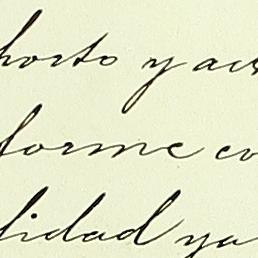 horto y acu
forme co
lidad ya